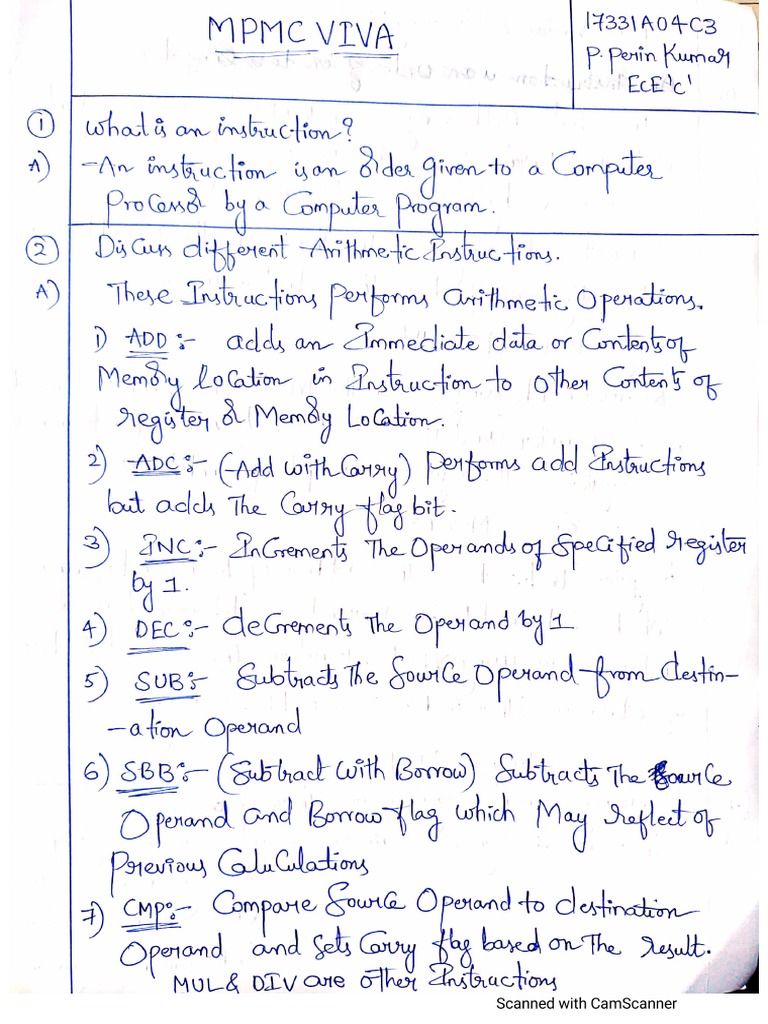 MPMC VIVA
17331A04C3
P. Perin Kumar
ECE 'C'
① What is an instruction?
A) -An instruction is an order given to a Computer
Processor by a Computer Program.
② Discuss different Arithmetic Instructions.
A) These Instructions Performs arithmetic Operations.
1) ADD :- adds an Immediate data or Contents of
Memory location in Instruction to other Contents of
register or Memory Location.
2) ADC :- (Add with Carry) Performs add Instructions
but adds The Carry flag bit.
3) INC :- InCrements The Operands of Specified register
by 1.
4) DEC :- deCrements The Operand by 1
5) SUB :- Subtracts The Source Operand from destin-
-ation Operand
6) SBB :- (Subtract with Borrow) Subtracts The Source
Operand and Borrow flag which May reflect of
Previous Caluculations
7) CMP :- Compare Source Operand to destination
Operand and sets Carry flag based on The result.
MUL & DIV are other Instructions
Scanned with CamScanner